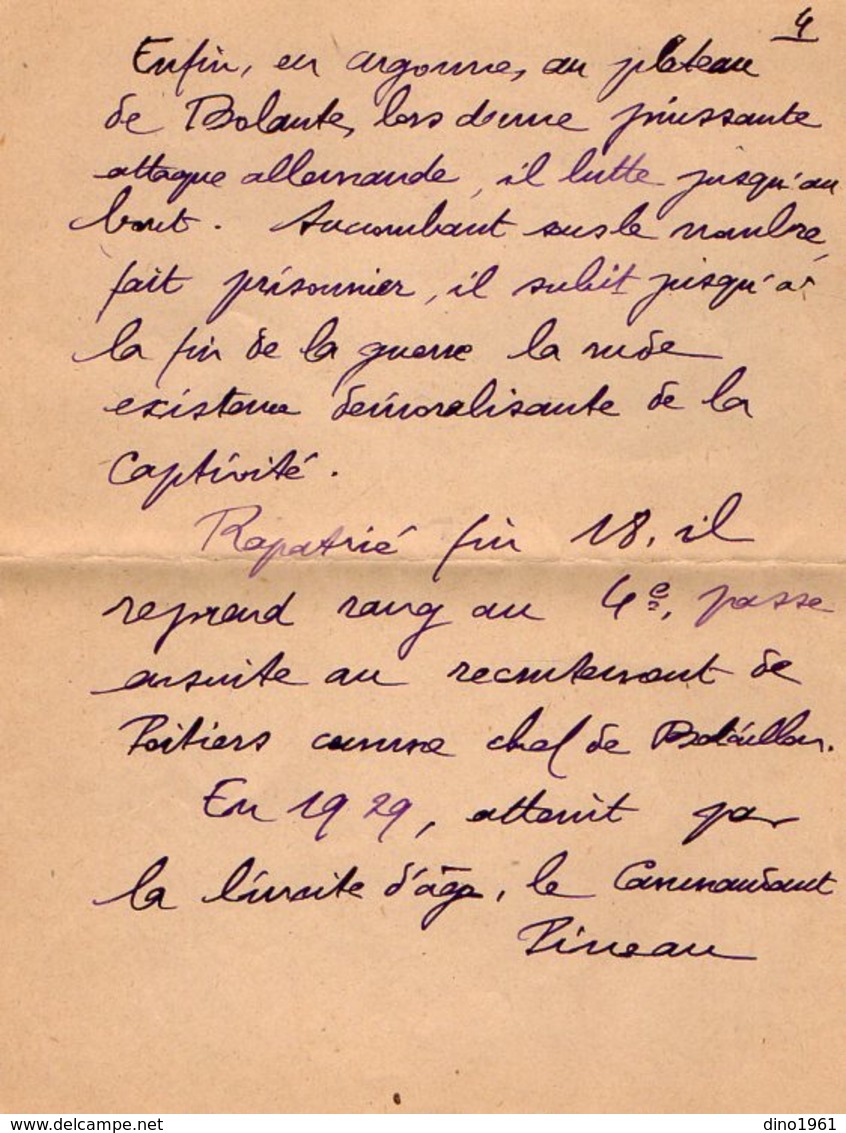 4
Enfin, en argonne, au plateau
de Bolante, lors d'une puissante
attaque allemande, il lutte jusqu'au
bout. Succombant sous le nombre,
fait prisonnier, il subit jusqu'à
la fin de la guerre la rude
existence démoralisante de la
Captivité.
Rapatrié fin 18, il
reprend rang au 4e, passe
ensuite au recrutement de
Poitiers comme chef de Bataillon.
En 1929, atteint par
la limite d'âge, le Commandant
Pineau
delcampe.net
dino1961